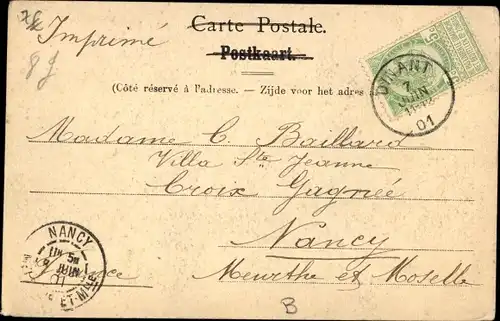 Carte Postale.
Postkaart.
Imprimé
(Côté réservé à l'adresse. — Zijde voor het adres
DINANT
7
JUIN
01
Madame C. Baillard
Villa Ste Jeanne
Croix Gagnée
Nancy
Meurthe et Moselle
France
NANCY
JUIN
01
B